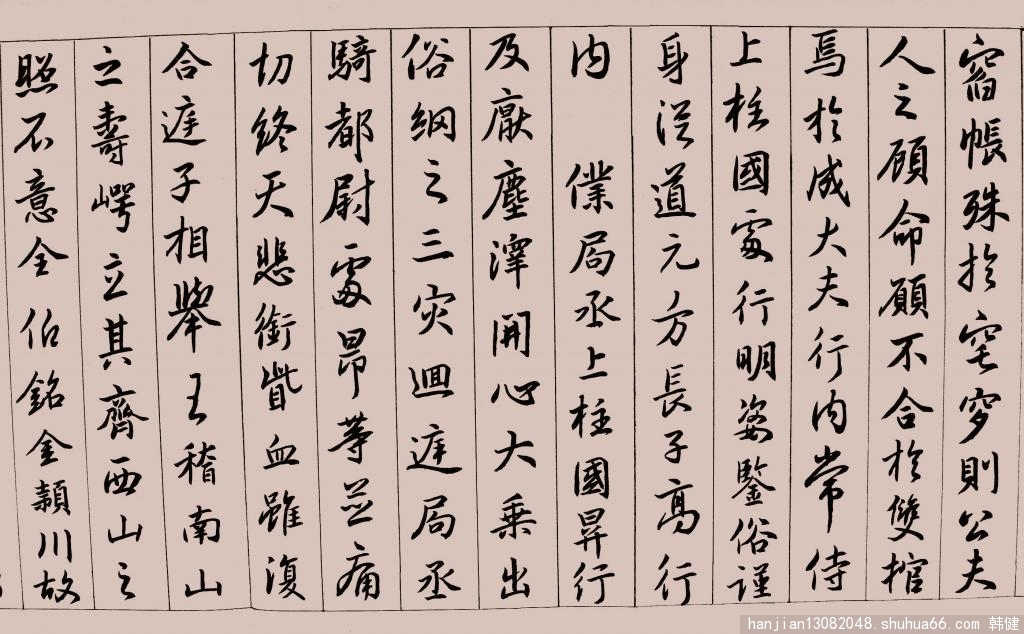 窅帳殊於窀穸則公夫
人之顧命願不合於雙棺
焉於咸大夫行內常侍
上柱國處行明姿鑒俗謹
身從道元方長子高行
內僕局丞上柱國昇行
及厭塵澤開心大乘出
俗網之三灾迴遑局丞
騎都尉處昂等並痛
切終天悲銜眥血雖復
合遑子相舉王稽南山
之壽崿立其齊西山之
照不意全佋銘金潁川故
hanjian13082048.shuhua66.com 韩健